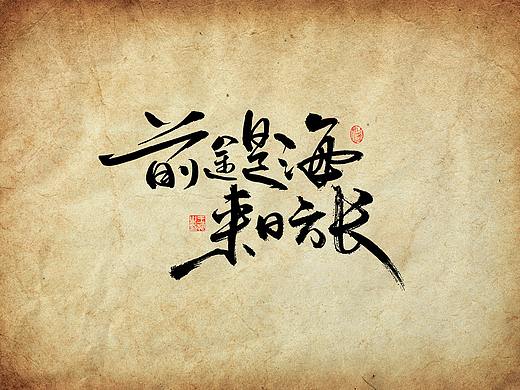 前途是海
来日方长